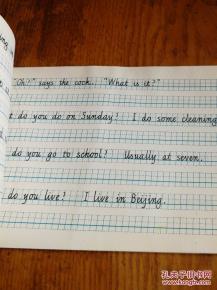 "Oh?" says the cook. "What is it?"
t do you do on Sunday? I do some cleaning
do you go to school? Usually at seven.
do you live? I live in Beijing.
孔夫子旧书网